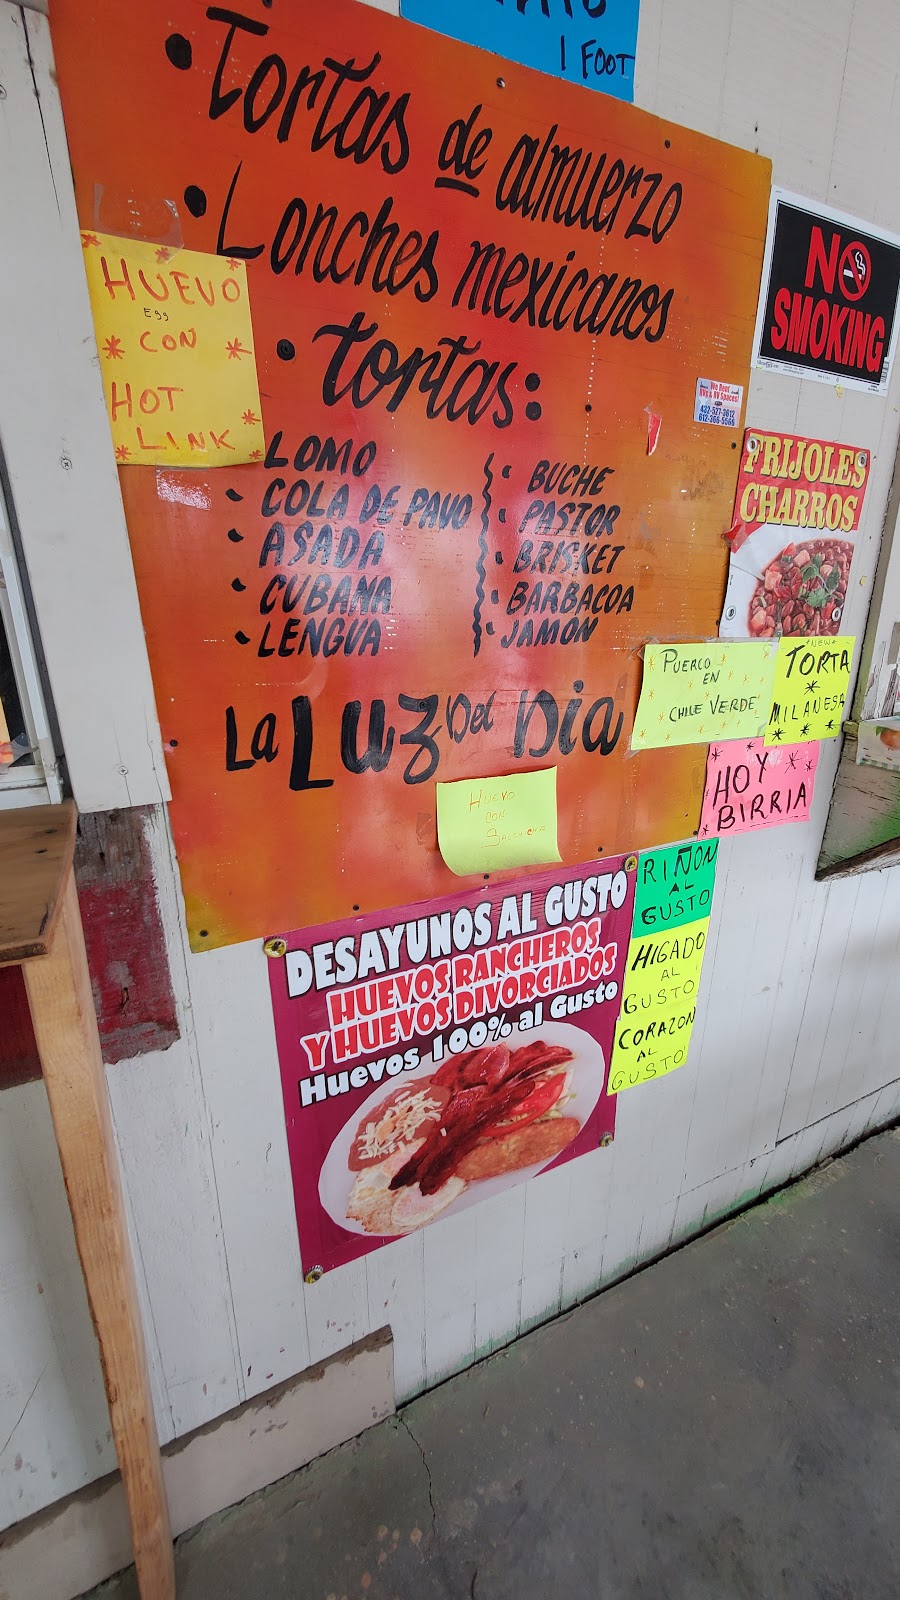 1 FOOT
• Tortas de almuerzo
• Lonches mexicanos
• Tortas:
LOMO
• COLA DE PAVO
• ASADA
• CUBANA
• LENGUA
• BUCHE
• PASTOR
• BRISKET
• BARBACOA
• JAMON
La Luz Del Dia
HUEVO
Egg
* CON *
HOT
LINK
NO
SMOKING
We Rent
RVs & RV Spaces!
432-527-3612
612-366-5566
FRIJOLES
CHARROS
PUERCO
EN
CHILE VERDE
*NEW*
TORTA
*
MILANESA
HOY
BIRRIA
HUEVO
CON
SALCHICHA
RIÑON
AL
GUSTO
HIGADO
AL
GUSTO
CORAZON
AL
GUSTO!
DESAYUNOS AL GUSTO
HUEVOS RANCHEROS
Y HUEVOS DIVORCIADOS
Huevos 100% al Gusto